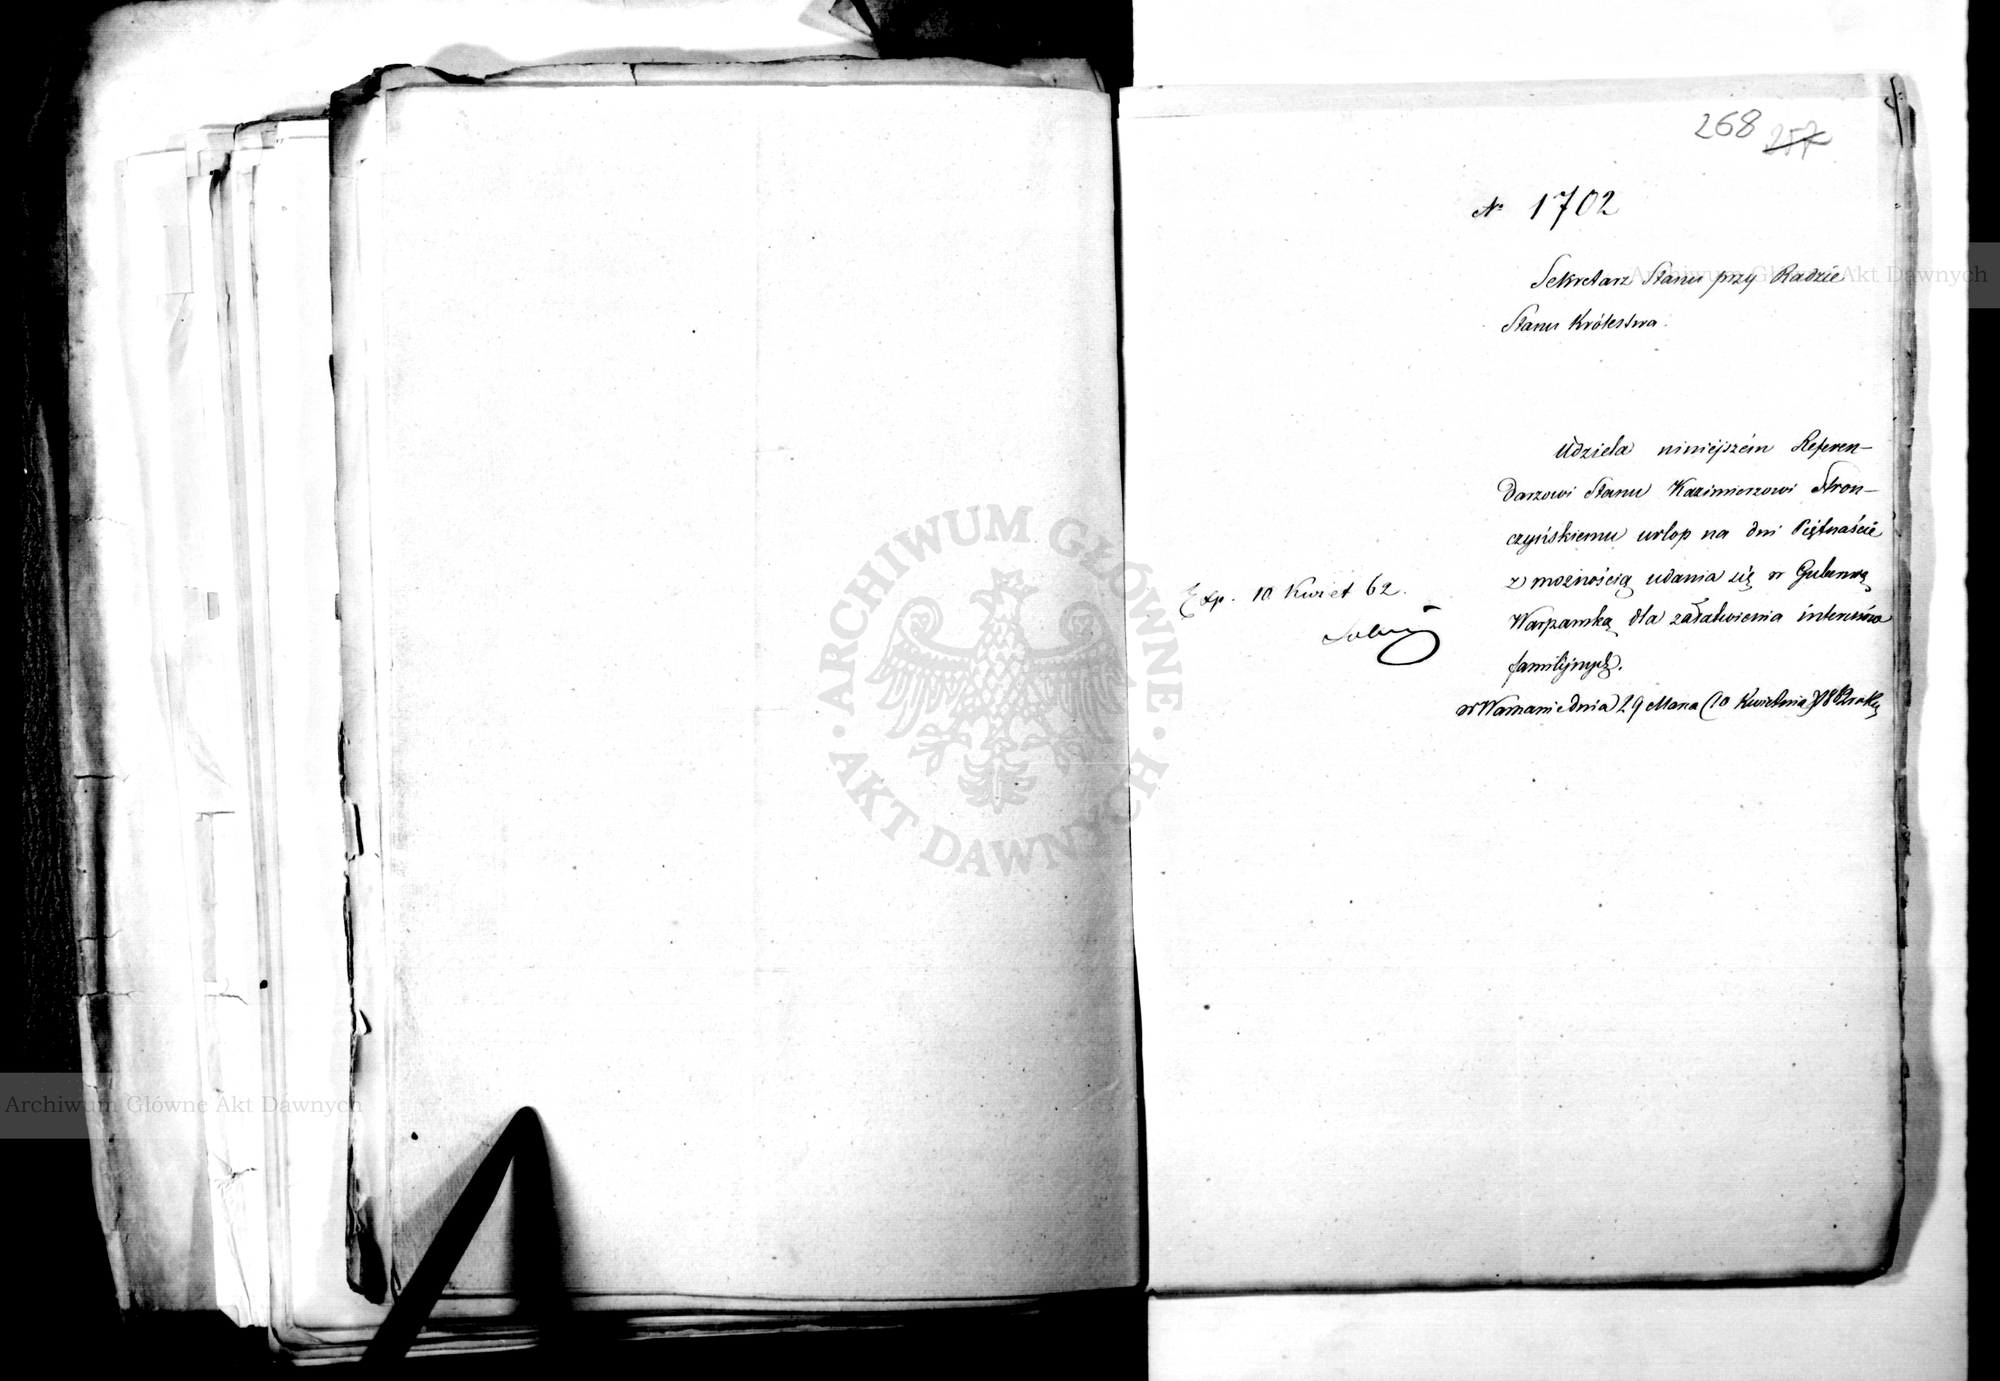 268 257
№ 1702
Sekretarz Stanu przy Radzie
Stanu Królestwa.
Udziela niniejszém Referen-
darzowi Stanu Kazimierzowi Stron-
czyńskiemu urlop na dni Piętnaście
z możnością udania się w Gubernią
Warszawską dla załatwienia interesów
familijnych.
w Warszawie dnia 29 Marca (10 Kwietnia) 1862 roku
Exp. 10 Kwiet 62.
ARCHIWUM GŁÓWNE
AKT DAWNYCH
Archiwum Główne Akt Dawnych
Archiwum Główne Akt Dawnych